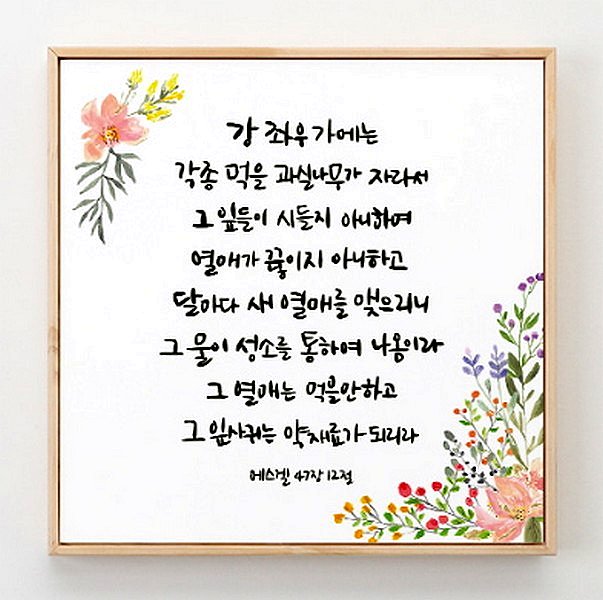 강 좌우 가에는
각종 먹을 과실나무가 자라서
그 잎들이 시들지 아니하며
열매가 끓이지 아니하고
달마다 새 열매를 맺으리니
그 물이 성소를 통하여 나옴이라
그 열매는 먹을만하고
그 잎사귀는 약재료가 되리라
에스겔 47장 12절